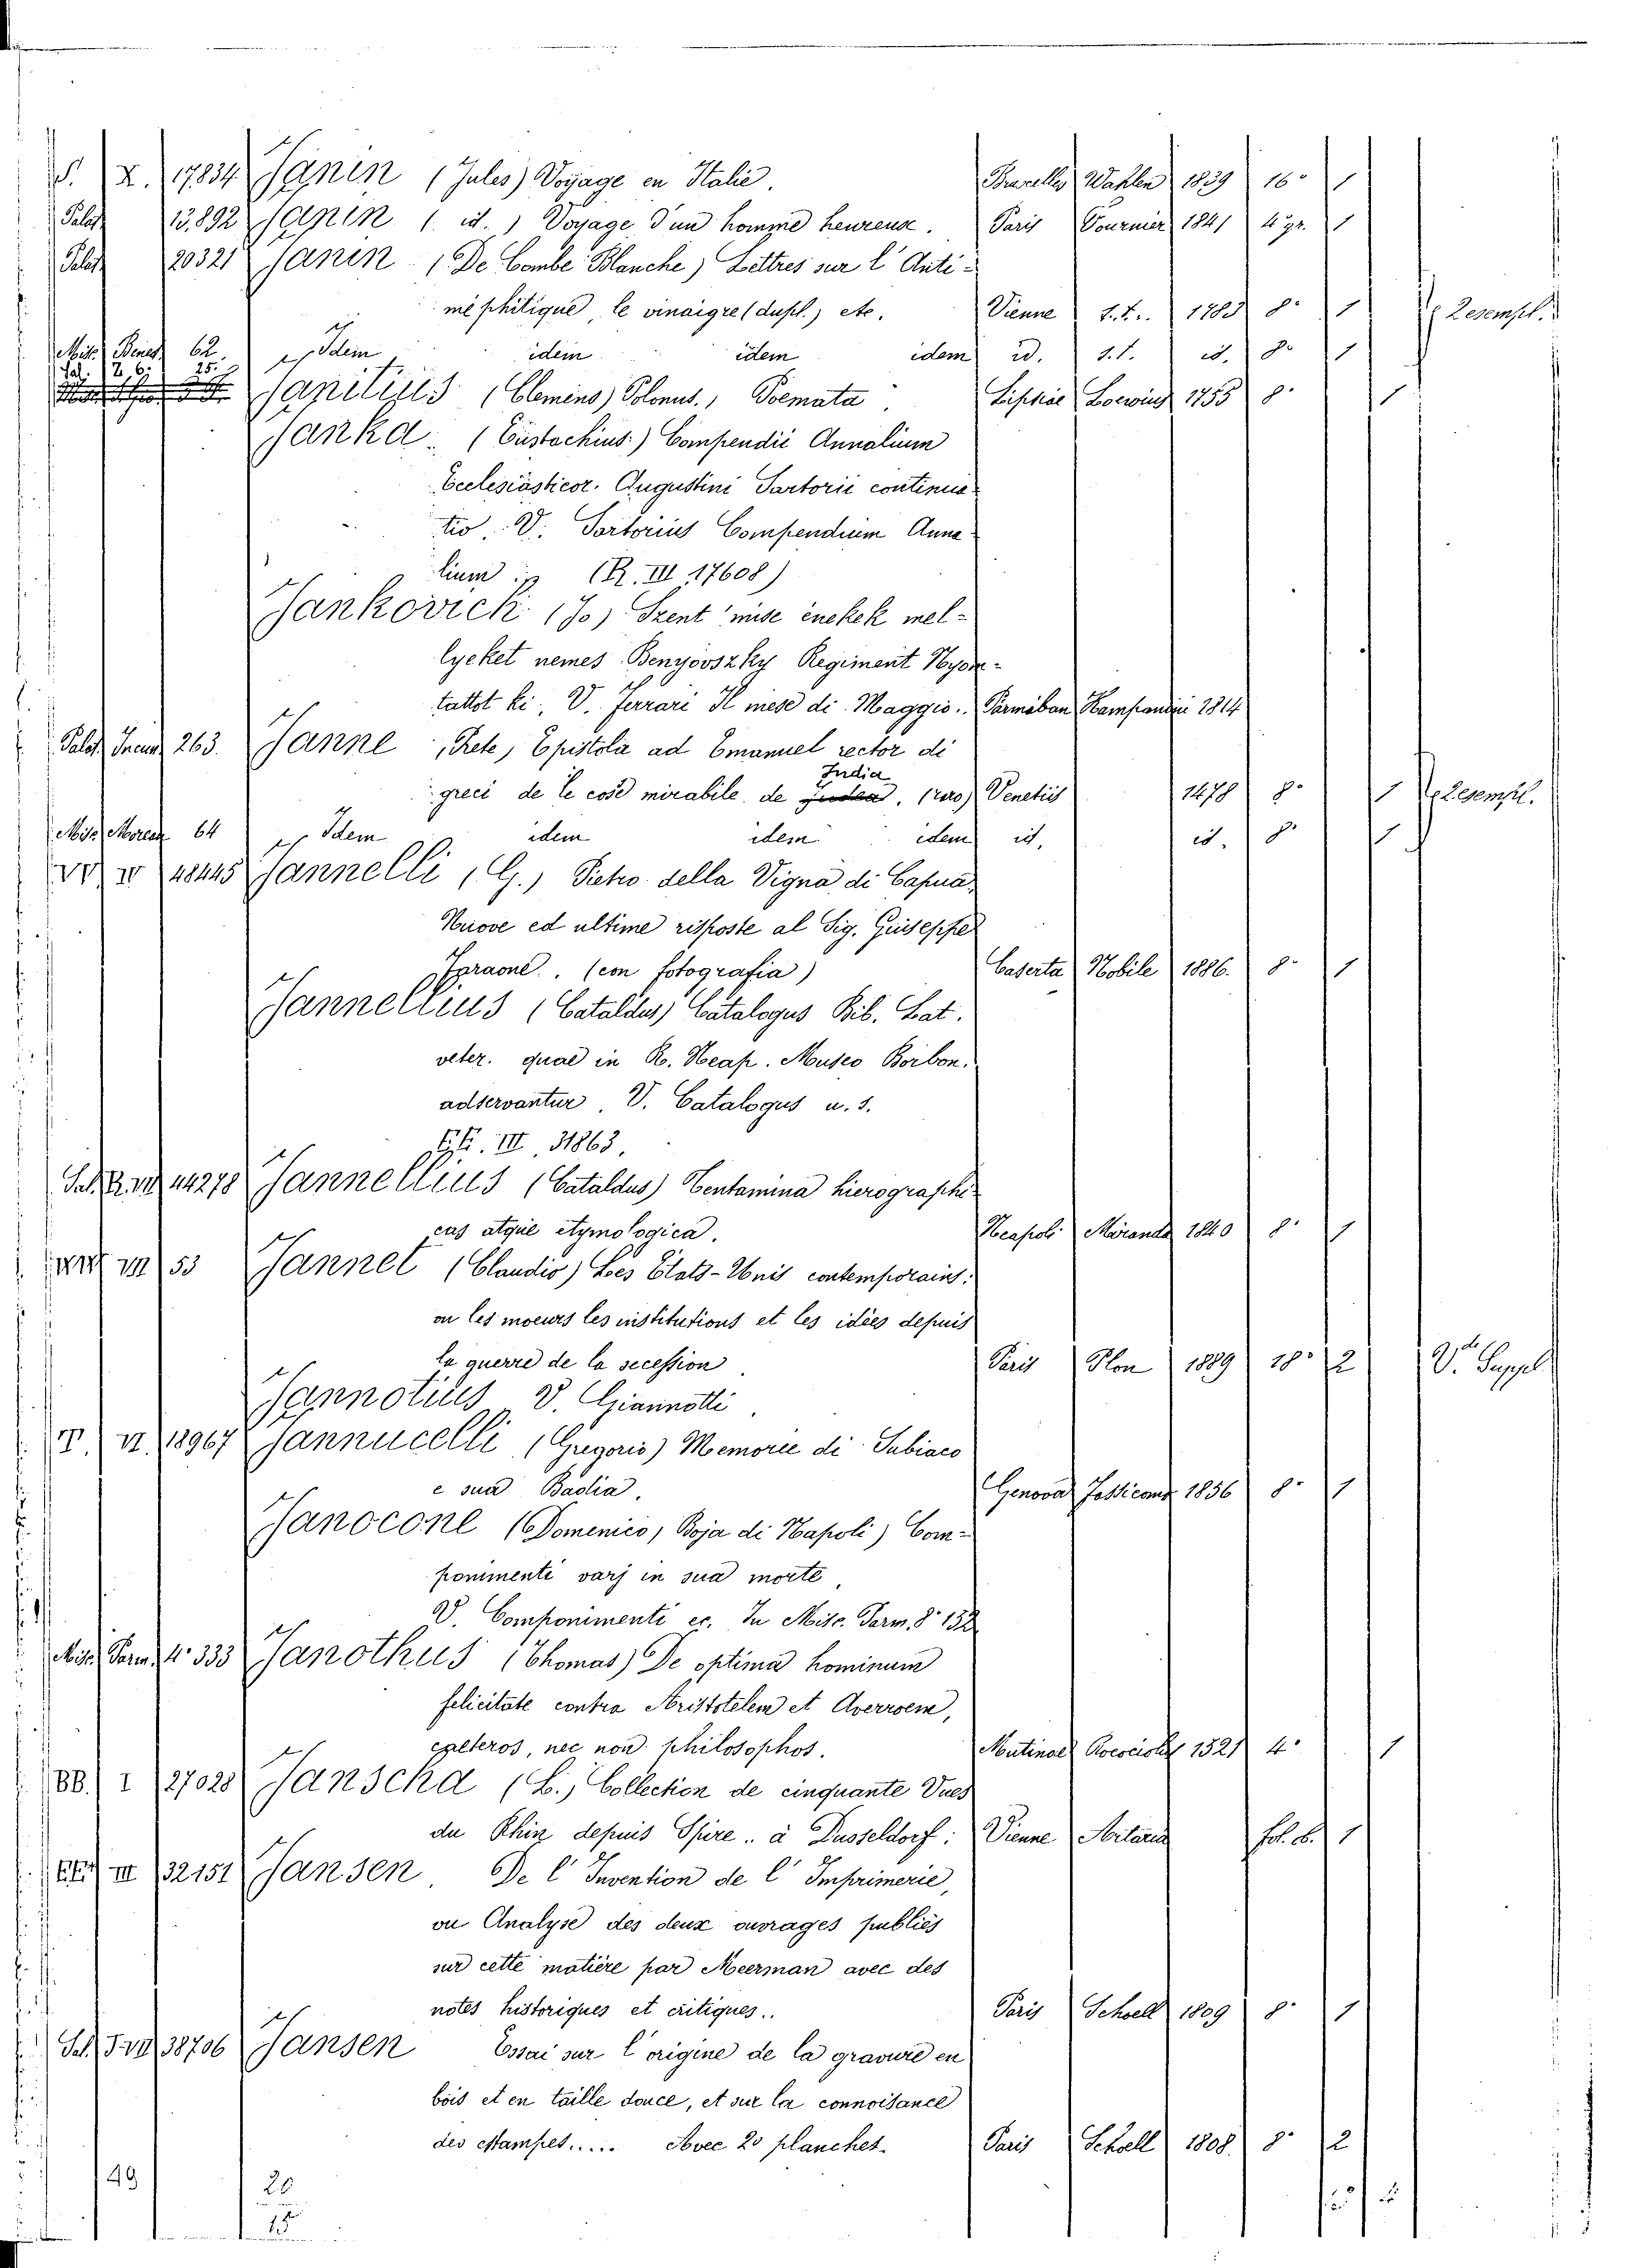 S. X. 17834 Janin (Jules) Voyage en Italie. Bruxelles Wahlen 1839 16° 1
Palat. 13.892 Janin ( id. ) Voyage d'un homme heureux. Paris Fournier 1841 4° gr. 1
Palat. 20321 Janin (De Combe Blanche) Lettres sur l'Anti-
méphitique, le vinaigre (dupl.) etc. Vienne s.t. 1783 8° 1 2 esempl.
Misc. Bened. 62. Idem idem idem idem id. s.t. id. 8° 1
Sal. Z. 6. 25. Janitius (Clemins) Polonus., Poemata. Lipsiae Loewing 1755 8° 1
Janka. (Eustachius) Compendii Annalium
Ecclesiasticor. Augustini Sartorii continua-
tio. V. Sartorius Compendium Anna-
lium (R. III 17608)
Jankovick (Jo) Szent mise énekek mel-
lyeket nemes Benyovszky Regiment Nyom-
tattot ki, V. Ferrari Il mese di Maggio.. Parmában Rampandini 1814
Palat. Incun. 263. Janne, Prete, Epistola ad Emanuel rector di
India
greci de le cose mirabile de , (raro) Venetiis 1478 8° 1 2 esempl.
Misc. Morean 64 Idem idem idem idem id. id. 8° 1
VV IV 48445 Jannelli (G.) Pietro della Vigna di Capua,
Nuove ed ultime risposte al Sig. Giuseppe
Faraone.. (con fotografia) Caserta Nobile 1886. 8° 1
Jannellius (Cataldus) Catalogus Bib. Lat.
veter. quae in R. Neap. Museo Borbon.
adservantur, V. Catalogus u. s.
EE. III 31863,
Sal. R. VII 44278 Jannellius (Cataldus) Tentamina hierographi-
cas atque etymologica. Neapoli Miranda 1840 8° 1
VII 53 Jannet (Claudio) Les États-Unis contemporains:
ou les moeurs les institutions et les idées depuis
la guerre de la secession Paris Plon 1889 18° 2 V. Suppl
Jannotius V. Giannotti
T. VI. 18967 Jannucelli (Gregorio) Memorie di Subiaco
e sua Badia. Genova 1856 8° 1
Janocone (Domenico, Boja di Napoli) Com-
ponimenti varj in sua morte,
V. Componimenti ec. In Misc. Parm. 8° 132
Misc. Parm. 4° 333 Janothus (Thomas) De optima hominum
felicitate contra Aristotelem et Averroem,
caeteros, nec non philosophos. Mutinae 1521 4° 1
BB. I 27028 Janscha (L.) Collection de cinquante Vues
du Rhin depuis Spire.. à Dusseldorf: Vienne Artaria fol. 1
EE III 32151 Jansen. De l'Invention de l'Imprimerie,
ou Analyse des deux ouvrages publiés
sur cette matière par Meerman avec des
notes historiques et critiques.. Paris Schoell 1809 8° 1
Sal. VII 38706 Jansen Essai sur l'origine de la gravure en
bois et en taille douce, et sur la connoisance
des estampes..... Avec 20 planches. Paris Schoell 1808 8° 2
49 20
15